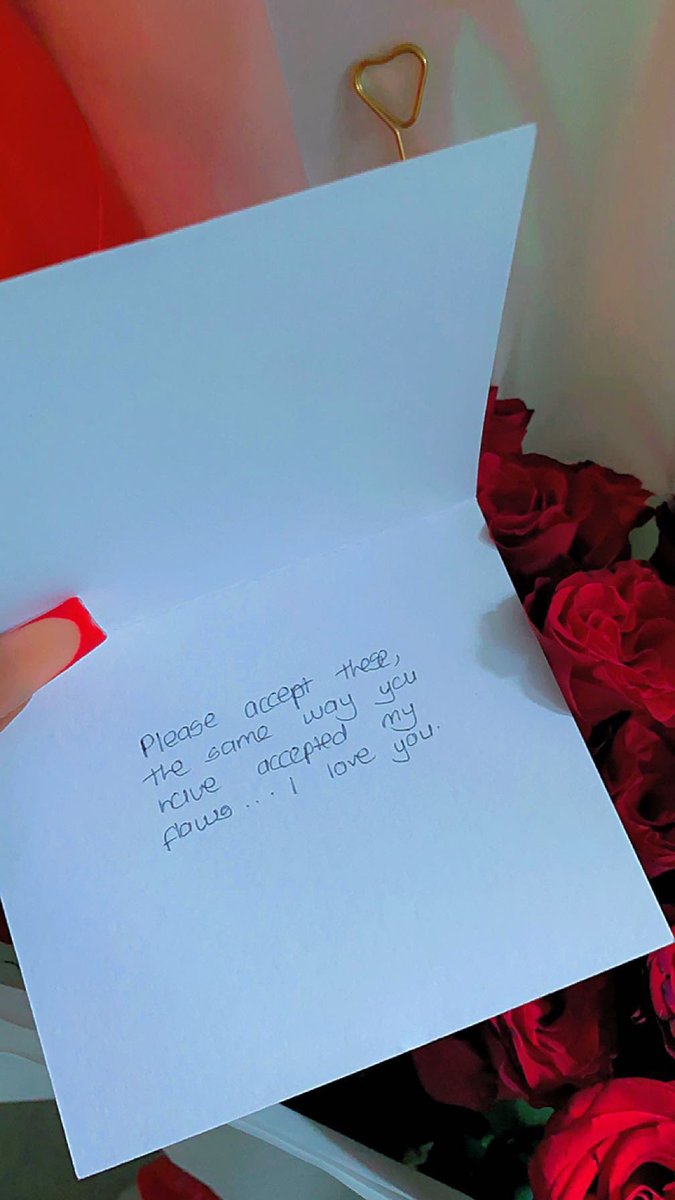 Please accept these,
the same way you
have accepted my
flaws... I love you.